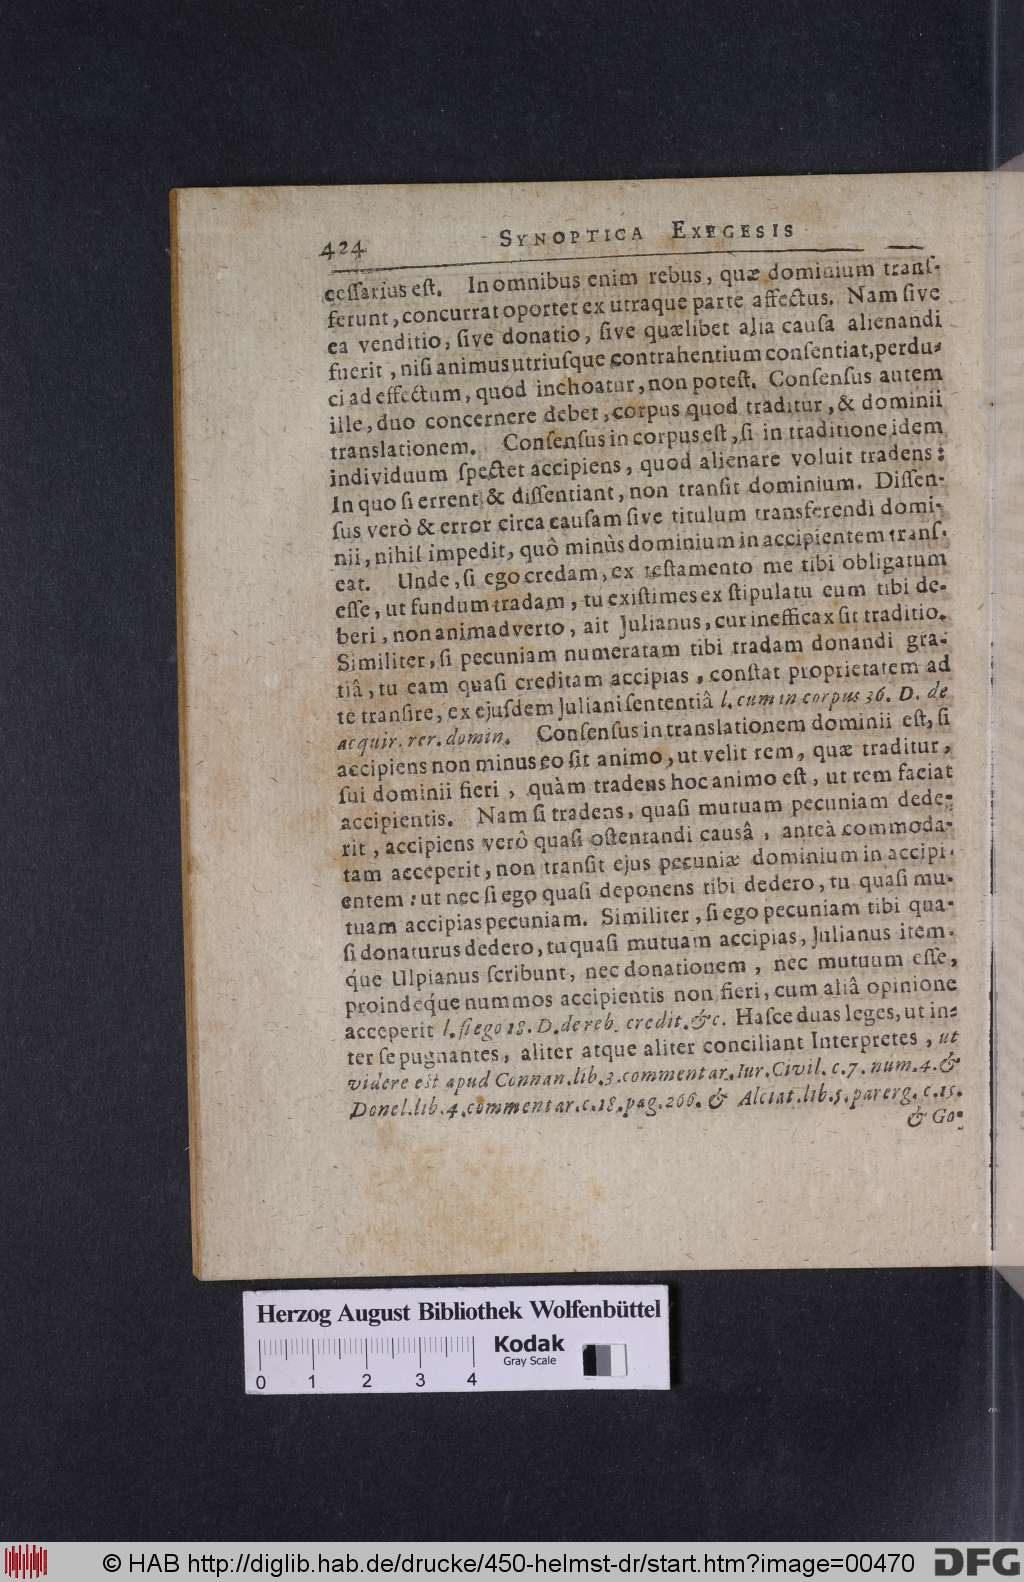 424 SYNOPTICA EXEGESIS
ceſſarius eſt. In omnibus enim rebus, quæ dominium tranſ-
ferunt, concurrat oportet ex utraque parte affectus. Nam ſive
ea venditio, ſive donatio, ſive quælibet alia cauſa alienandi
fuerit, niſi animus utriuſque contrahentium conſentiat, perdu-
ci ad effectum, quod inchoatur, non poteſt. Conſenſus autem
ille, duo concernere debet, corpus quod traditur, & dominii
translationem. Conſenſus in corpus eſt, ſi in traditione idem
individuum ſpectet accipiens, quod alienare voluit tradens:
In quo ſi errent & diſſentiant, non tranſit dominium. Diſſen-
ſus verò & error circa cauſam ſive titulum transferendi domi-
nii, nihil impedit, quô minùs dominium in accipientem tranſ-
eat. Unde, ſi ego credam, ex teſtamento me tibi obligatum
eſſe, ut fundum tradam, tu exiſtimes ex ſtipulatu eum tibi de-
beri, non animadverto, ait Julianus, cur inefficax ſit traditio.
Similiter, ſi pecuniam numeratam tibi tradam donandi gra-
tiâ, tu eam quaſi creditam accipias, conſtat proprietatem ad
te tranſire, ex ejuſdem Juliani ſententiâ l. cum in corpus 36. D. de
acquir. rer. domin. Conſenſus in translationem dominii eſt, ſi
accipiens non minus eo ſit animo, ut velit rem, quæ traditur,
ſui dominii fieri, quàm tradens hoc animo eſt, ut rem faciat
accipientis. Nam ſi tradens, quaſi mutuam pecuniam dede-
rit, accipiens verò quaſi oſtentandi causâ, anteà commoda-
tam acceperit, non tranſit ejus pecuniæ dominium in accipi-
entem: ut nec ſi ego quaſi deponens tibi dedero, tu quaſi mu-
tuam accipias pecuniam. Similiter, ſi ego pecuniam tibi qua-
ſi donaturus dedero, tu quaſi mutuam accipias, Julianus item-
q́ue Ulpianus ſcribunt, nec donationem, nec mutuum eſſe,
proindeq́ue nummos accipientis non fieri, cum aliâ opinione
acceperit l. ſi ego 18. D. de reb. credit. &c. Haſce duas leges, ut in-
ter ſe pugnantes, aliter atque aliter conciliant Interpretes, ut
videre est apud Connan. lib. 3. commentar. Iur. Civil. c. 7. num. 4. &
Donel. lib. 4. commentar. c. 18. pag. 266. & Alciat. lib. 5. parerg. c. 15.
& Go-
Herzog August Bibliothek Wolfenbüttel
Kodak
Gray Scale
0 1 2 3 4
© HAB http://diglib.hab.de/drucke/450-helmst-dr/start.htm?image=00470 DFG